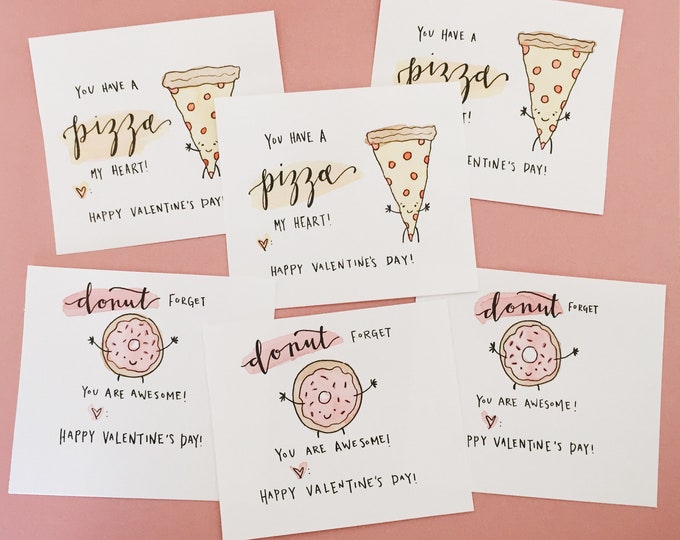 YOU HAVE A
pizza
MY HEART!
♡:
HAPPY VALENTINE'S DAY!
YOU HAVE A
pizza
MY HEART!
♡:
HAPPY VALENTINE'S DAY!
YOU HAVE A
pizza
VALENTINE'S DAY!
donut FORGET
YOU ARE AWESOME!
♡:
HAPPY VALENTINE'S DAY!
donut FORGET
YOU ARE AWESOME!
♡:
HAPPY VALENTINE'S DAY!
donut FORGET
YOU ARE AWESOME!
♡:
HAPPY VALENTINE'S DAY!